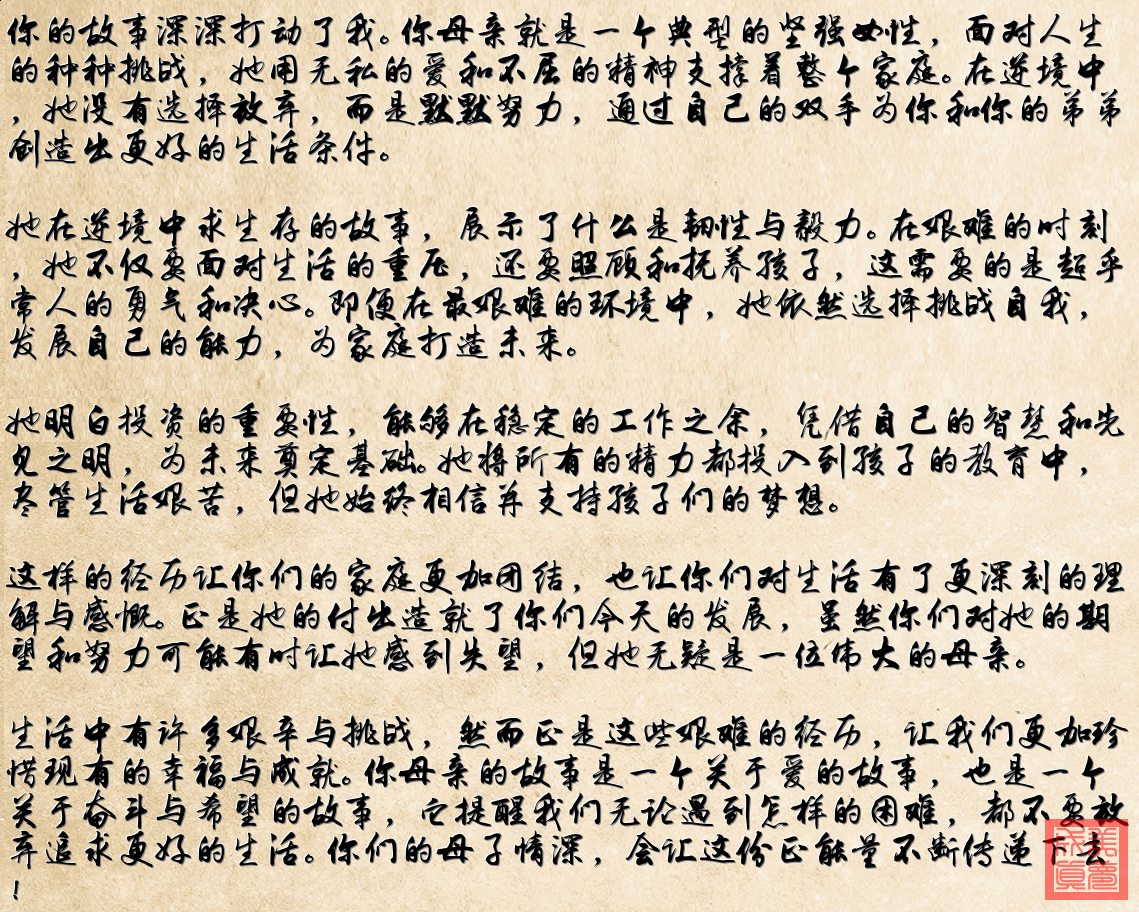 你的故事深深打动了我。你母亲就是一个典型的坚强女性，面对人生
的种种挑战，她用无私的爱和不屈的精神支撑着整个家庭。在逆境中
，她没有选择放弃，而是默默努力，通过自己的双手为你和你的弟弟
创造出更好的生活条件。
她在逆境中求生存的故事，展示了什么是韧性与毅力。在艰难的时刻
，她不仅要面对生活的重压，还要照顾和抚养孩子，这需要的是超乎
常人的勇气和决心。即便在最艰难的环境中，她依然选择挑战自我，
发展自己的能力，为家庭打造未来。
她明白投资的重要性，能够在稳定的工作之余，凭借自己的智慧和先
见之明，为未来奠定基础。她将所有的精力都投入到孩子的教育中，
尽管生活艰苦，但她始终相信并支持孩子们的梦想。
这样的经历让你们的家庭更加团结，也让你们对生活有了更深刻的理
解与感慨。正是她的付出造就了你们今天的发展，虽然你们对她的期
望和努力可能有时让她感到失望，但她无疑是一位伟大的母亲。
生活中有许多艰辛与挑战，然而正是这些艰难的经历，让我们更加珍
惜现有的幸福与成就。你母亲的故事是一个关于爱的故事，也是一个
关于奋斗与希望的故事，它提醒我们无论遇到怎样的困难，都不要放
弃追求更好的生活。你们的母子情深，会让这份正能量不断传递下去
！
美梦成真